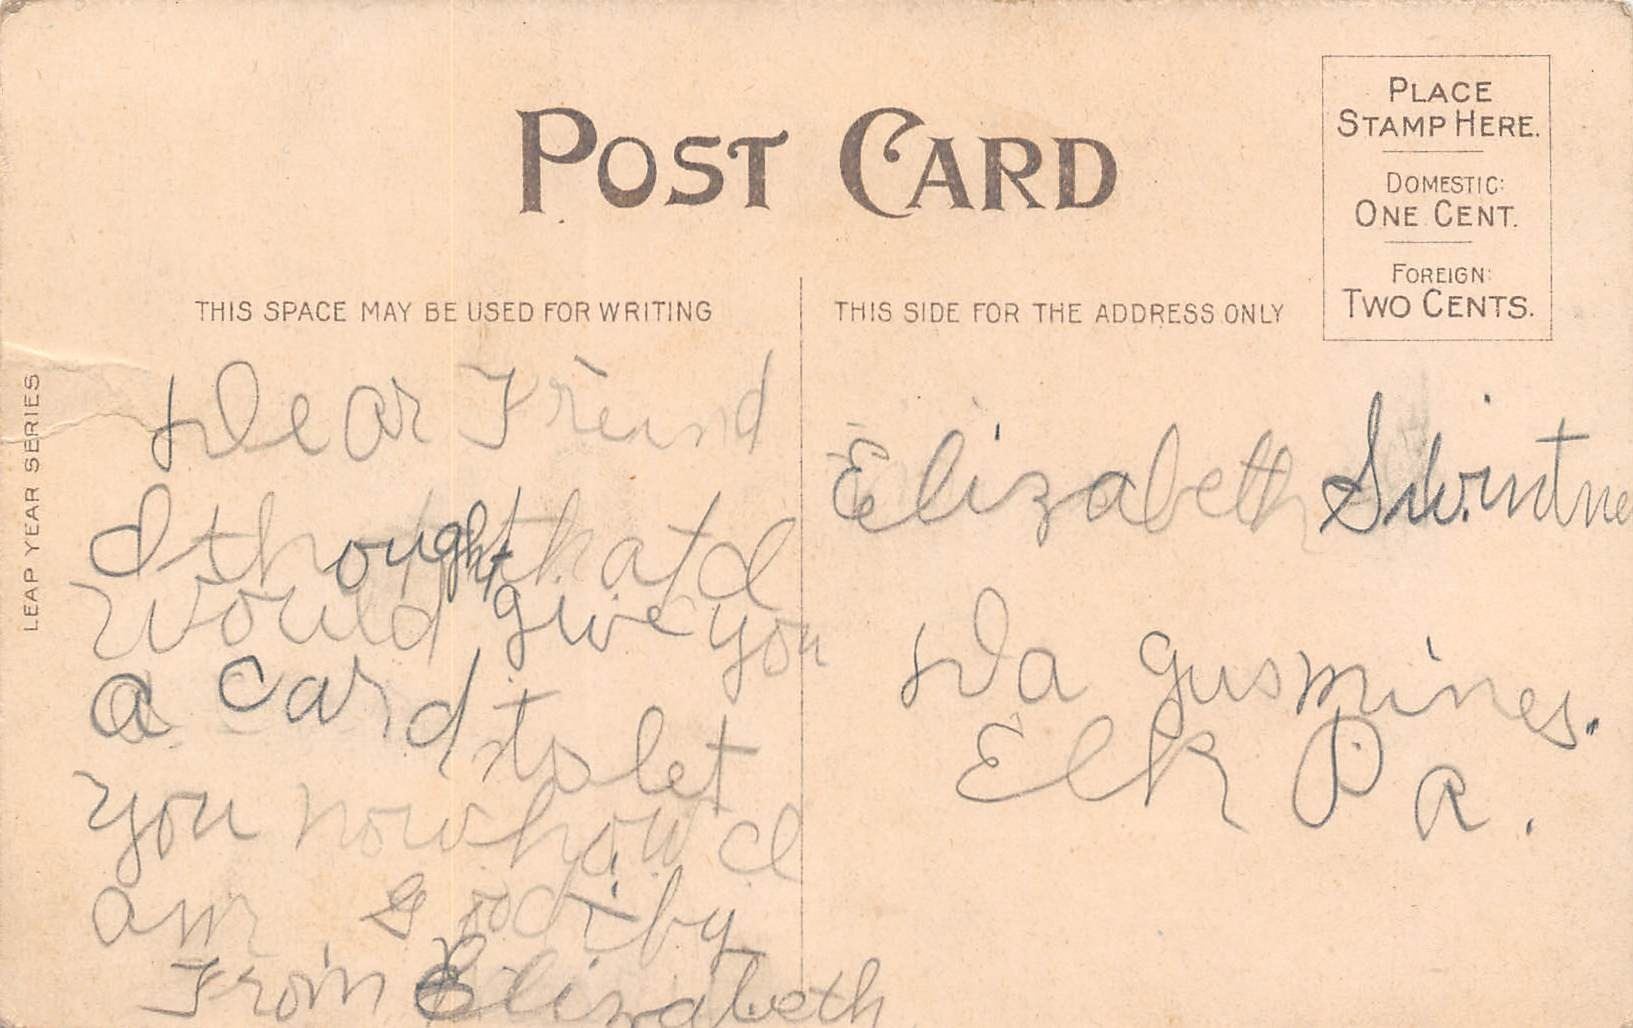 POST CARD
PLACE
STAMP HERE.
DOMESTIC:
ONE CENT.
FOREIGN:
TWO CENTS.
THIS SPACE MAY BE USED FOR WRITING
THIS SIDE FOR THE ADDRESS ONLY
LEAP YEAR SERIES
Dear Freind
I thought that I
would give you
a card to let
you now how I
am good by
From Elizabeth
Elizabeth
Da gus mines.
Elk PA.